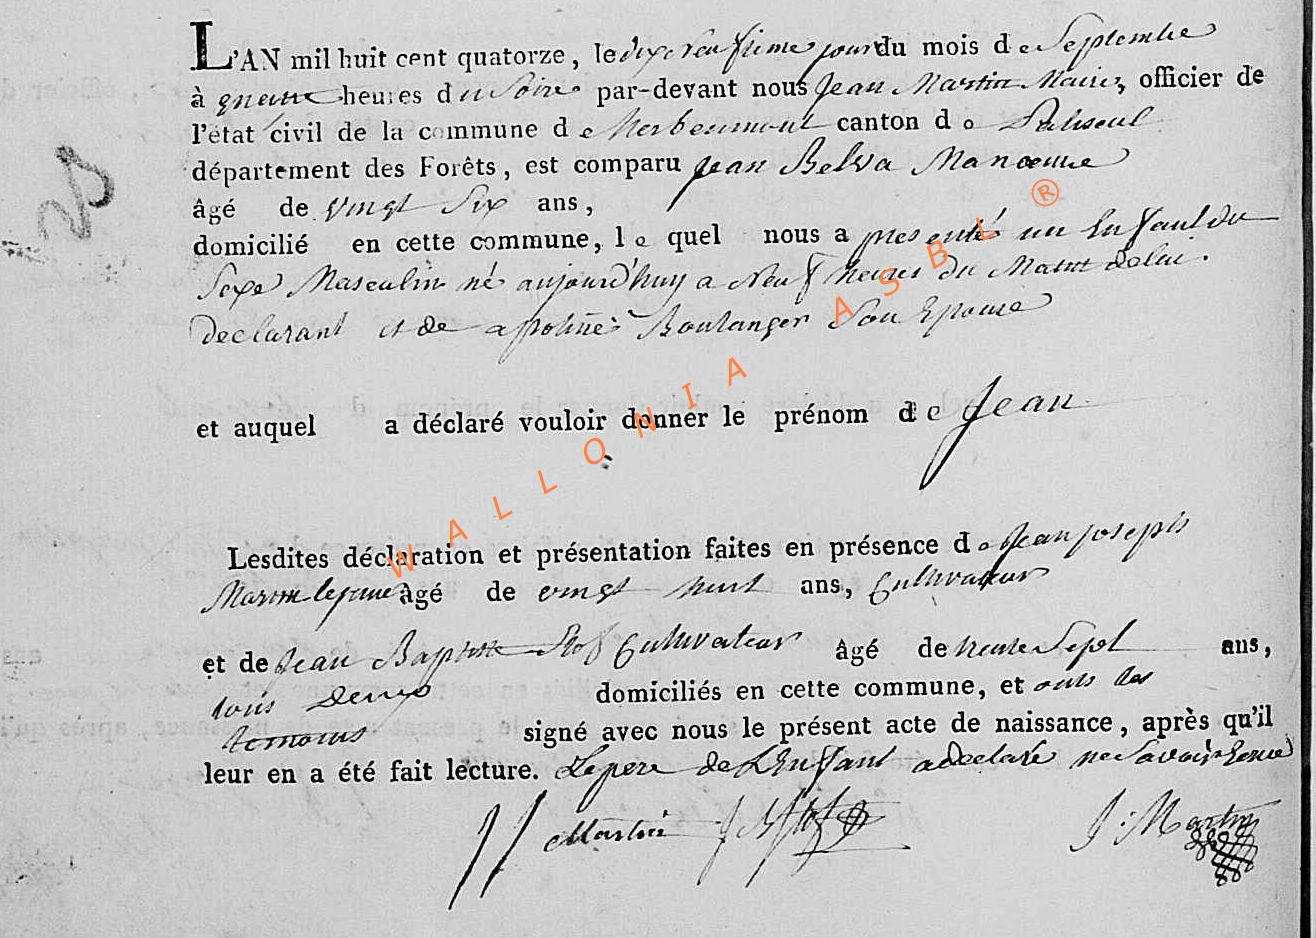 L'AN mil huit cent quatorze, le dixe neufsieme jour du mois de Septembre
à quatre heures du Soire par-devant nous Jean Martin Maire, officier de
l'état civil de la commune de herbeumont canton de Paliseul
département des Forêts, est comparu Jean Belva Manœuvre
âgé de vingt Six ans,
domicilié en cette commune, le quel nous a presenté un Enfant du
Sexe Masculin né aujourd'huy a Neuf heures du Matin de lui
declarant et de appoline Boulanger Son Epouse
et auquel a déclaré vouloir donner le prénom de Jean
WALLONIA ASBL ®
Lesdites déclaration et présentation faites en présence de Jean joseph
Martin lejeune âgé de vingt huit ans, Cultivateur
et de Jean Baptiste Stof Cultivateur âgé de trente Sept ans,
tous Deux domiciliés en cette commune, et onts les
temoins signé avec nous le présent acte de naissance, après qu'il
leur en a été fait lecture. Le pere de L'Enfant a declaré ne Savoir
JJ Martin J B Stof J: Martin